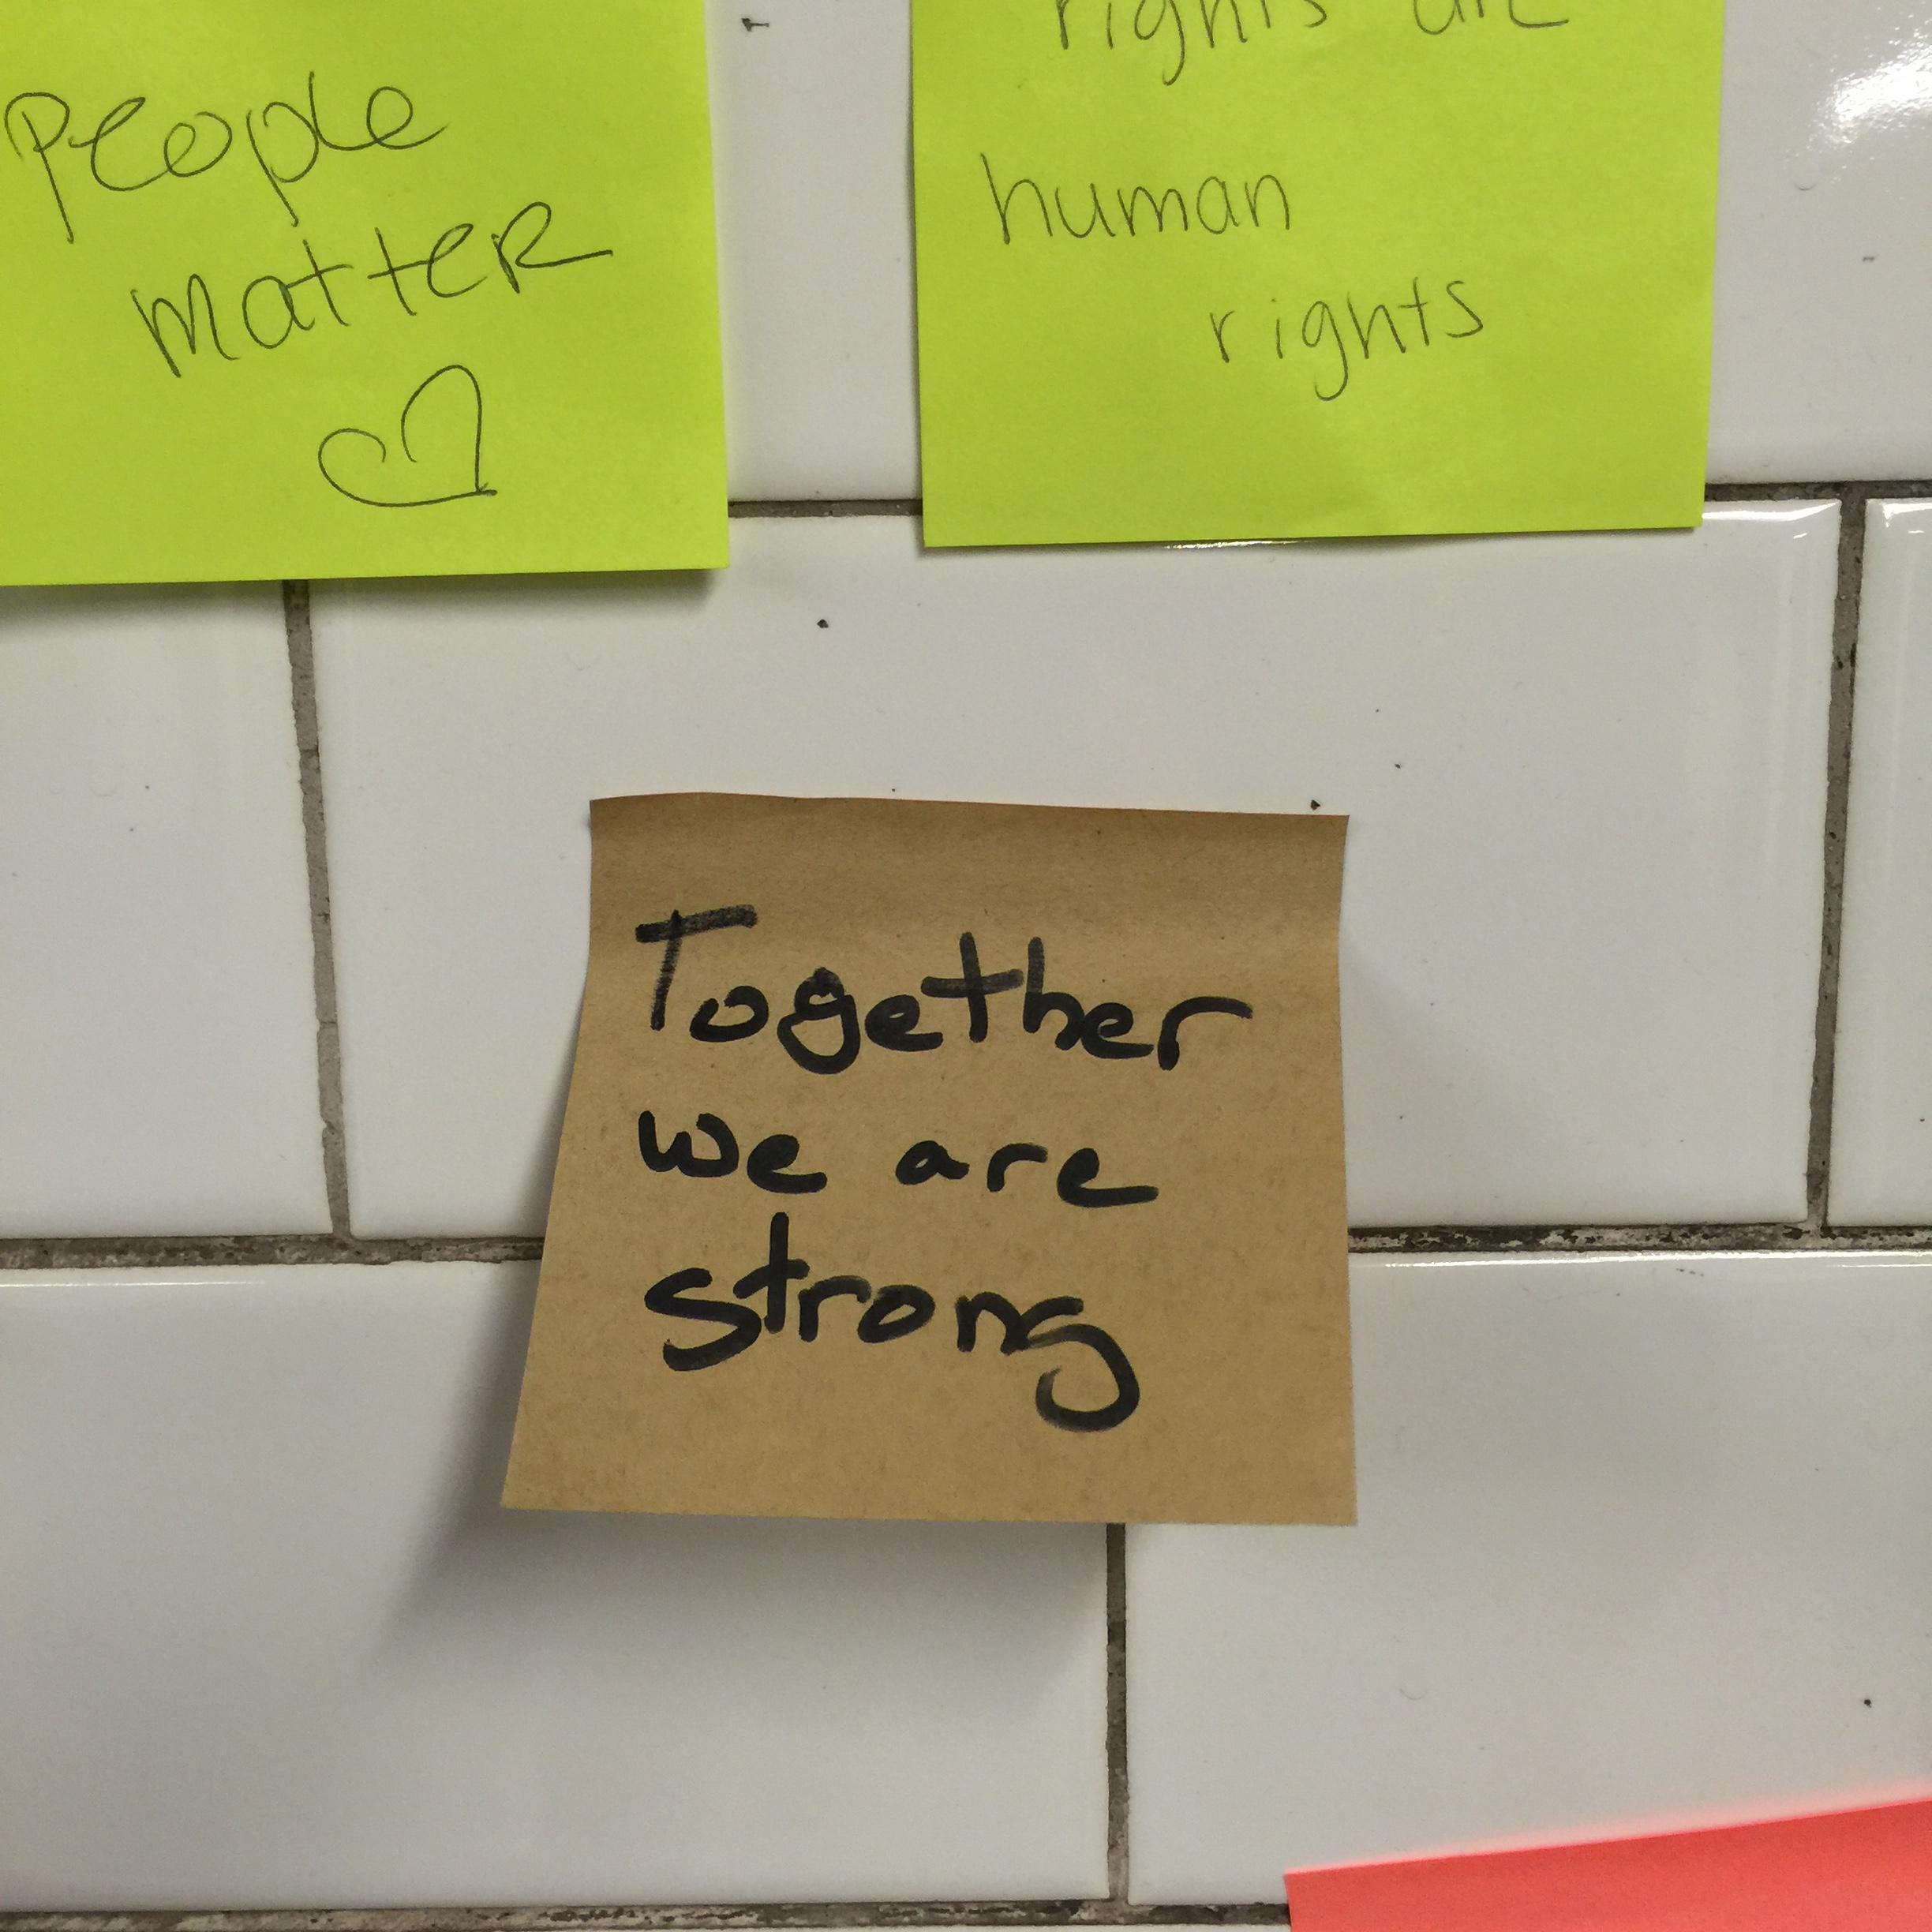 People
matter
rights are
human
rights
Together
we are
strong